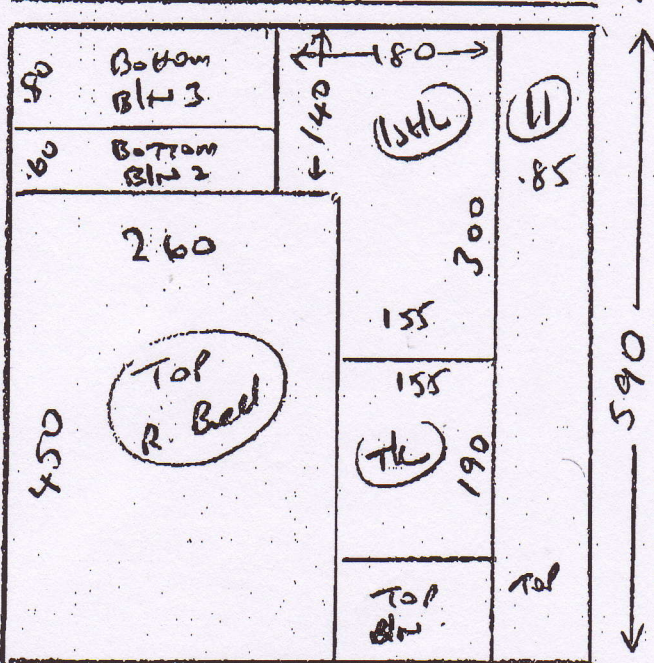 .80
Bottom
Bln 3
.60
Bottom
Bln 2
180
140
11
.85
260
300
155
Top
R.
450
155
190
590
Top
Bln
Top